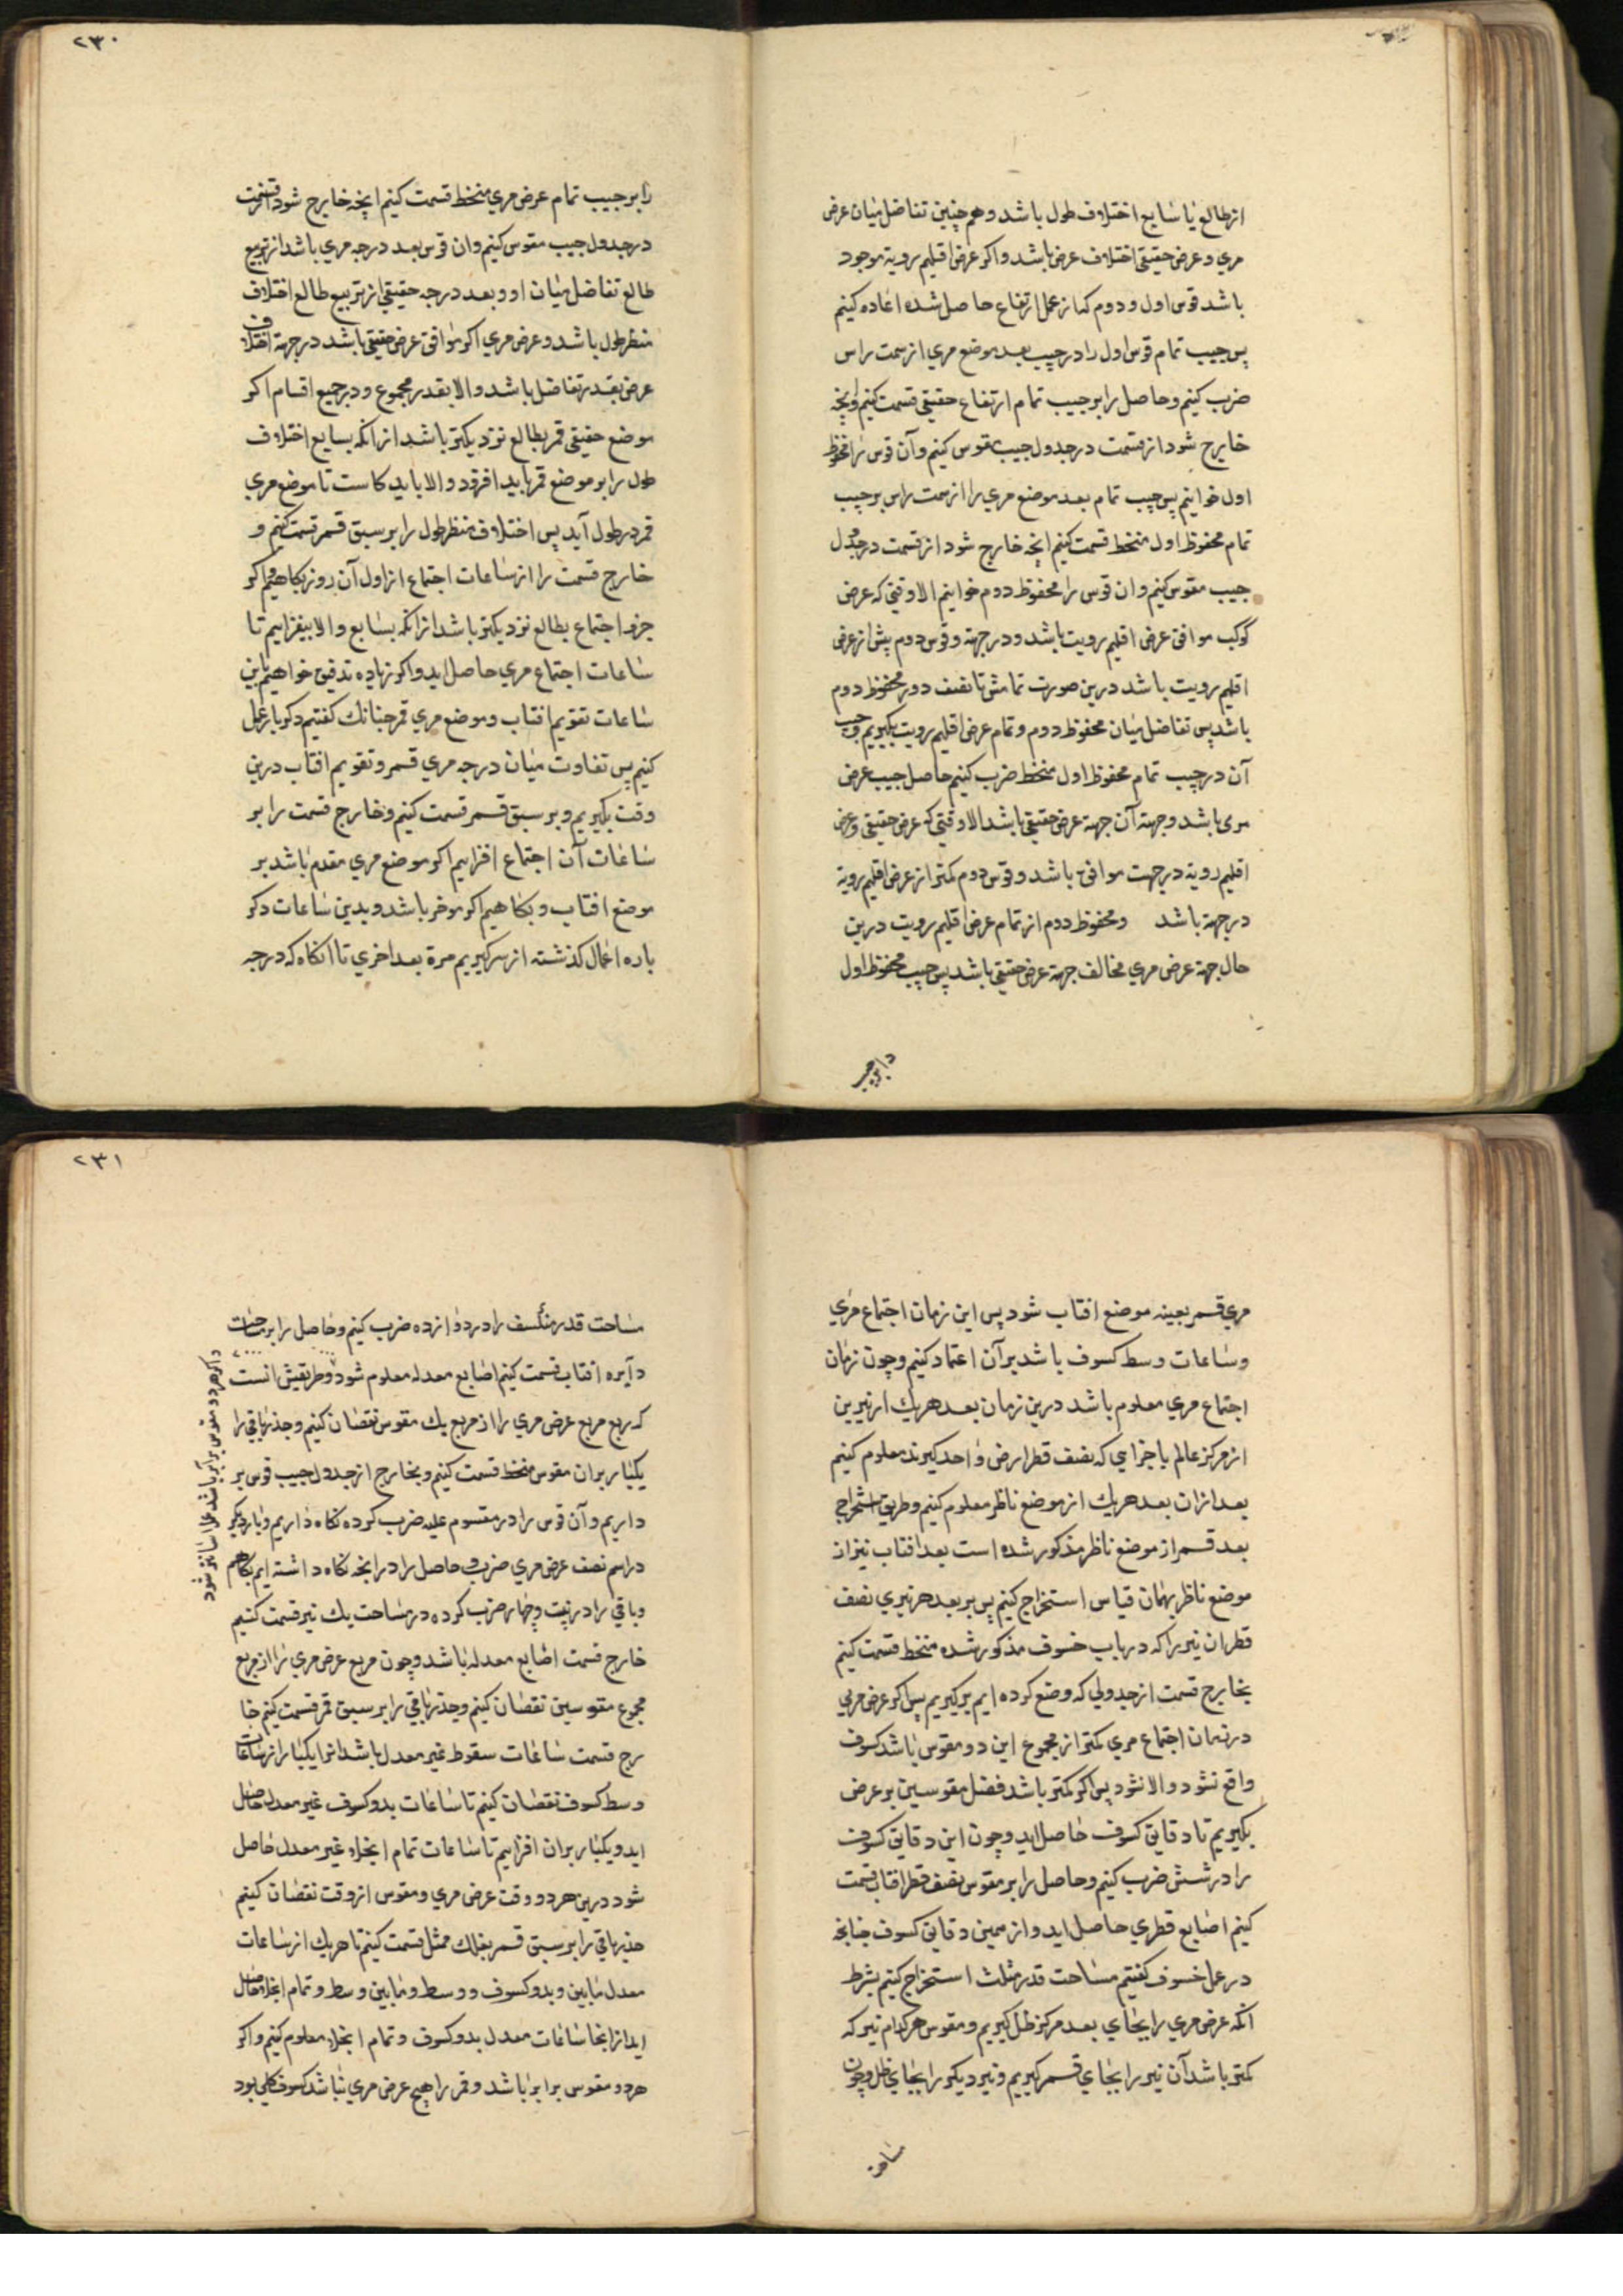 از طالع یا سایع اختلاف طول باشد و هم چنین تفاضل میان عرض
مری و عرض حقیقی اختلاف عرض باشد و اکر عرض اقلیم رویة موجود
باشد قوس اول و دوم که از عمل ارتفاع حاصل شده اعاده کنیم
پس جیب تمام قوس اول را در جیب بعد موضع مری از سمت راس
ضرب کنیم و حاصل را بر جیب تمام ارتفاع حقیقی قسمت کنیم و انچه
خارج شود از قسمت در جدول جیب مقوس کنیم و آن قوس را محفوظ
اول خوانیم پس جیب تمام بعد موضع مری را از سمت راس بر جیب
تمام محفوظ اول منحط قسمت کنیم انچه خارج شود از قسمت در جدول
جیب مقوس کنیم و ان قوس را محفوظ دوم خوانیم الا وقتی که عرض
کوکب موافق عرض اقلیم رویت باشد و در جهة و قوس دوم بیش از عرض
اقلیم رویت باشد درین صورت تمامش تا نصف دور محفوظ دوم
باشد پس تفاضل میان محفوظ دوم و تمام عرض اقلیم رویت بکیریم و جیب
آن در جیب تمام محفوظ اول منحط ضرب کنیم حاصل جیب عرض
مری باشد و جهة آن جهة عرض حقیقی باشد الا وقتی که عرض حقیقی و عرض
اقلیم رویة در جهت موافق باشد و قوس دوم کمتر از عرض اقلیم رویة
در جهة باشد و محفوظ دوم از تمام عرض اقلیم رویت درین
حال جهة عرض مری مخالف جهة عرض حقیقی باشد پس جیب محفوظ اول
را بر جیب
۲۳۰
را بر جیب تمام عرض مری منحط قسمت کنیم انچه خارج شود از قسمت
در جدول جیب مقوس کنیم و ان قوس بعد درجه مری باشد از تربیع
طالع تفاضل میان او و بعد درجه حقیقی از تربیع طالع اختلاف
منظر طول باشد و عرض مری اکر موافق عرض حقیقی باشد در جهة اختلاف
عرض بقدر تفاضل باشد و الا بقدر مجموع و در جمیع اقسام اکر
موضع حقیقی قمر بطالع نزدیکتر باشد از انکه بسایع اختلاف
طول را بر موضع قمر باید افزود و الا باید کاست تا موضع مری
قمر در طول آید پس اختلاف منظر طول را بر سبق قمر قسمت کنیم و
خارج قسمت را از ساعات اجتماع از اول آن روز بکاهیم اکر
جزو اجتماع بطالع نزدیکتر باشد از انکه بسابع و الا بیفزاییم تا
ساعات اجتماع مری حاصل اید و اکر زیاده تدقیق خواهیم باین
ساعات تقویم افتاب و موضع مری قمر جنانك کفتیم دکر بار عمل
کنیم پس تفاوت میان درجه مری قمر و تقویم افتاب درین
وقت بکیریم و بر سبق قمر قسمت کنیم و خارج قسمت را بر
ساعات آن اجتماع افزاییم اکر موضع مری مقدم باشد بر
موضع افتاب و بکاهیم اکر موخر باشد و بدین ساعات دکر
باره اعمال کذشته از سر کیریم مرة بعد اخری تا انکاه که درجه
مری قمر بعینه موضع افتاب شود پس این زمان اجتماع مری
و ساعات وسط کسوف باشد بر آن اعتماد کنیم و چون زمان
اجتماع مری معلوم باشد درین زمان بعد هریك از نیرین
از مرکز عالم باجزایی که نصف قطر ارض واحد کیرند معلوم کنیم
بعد از ان بعد هریك از موضع ناظر معلوم کنیم و طریق استخراج
بعد قمر از موضع ناظر مذکور شده است بعد افتاب نیز از
موضع ناظر بهمان قیاس استخراج کنیم پس بر بعد هر نیری نصف
قطر ان نیر را که در باب خسوف مذکور شده منحط قسمت کنیم
بخارج قسمت از جدولی که وضع کرده ایم بر کیریم پس اکر عرض مری
در زمان اجتماع مری کمتر از مجموع این دو مقوس باشد کسوف
واقع شود و الا نشود پس اکر کمتر باشد فضل مقوسین بر عرض
بکیریم تا دقایق کسوف حاصل اید و چون این دقایق کسوف
را در شش ضرب کنیم و حاصل را بر مقوس نصف قطر افتاب قسمت
کنیم اصابع قطری حاصل اید و از همین دقایق کسوف جنانچه
در عمل خسوف کفتیم مساحت قدر مثلث استخراج کنیم بشرط
انکه عرض مری را بجای بعد مرکز ظل کیریم و مقوس هر کدام نیر که
کمتر باشد آن نیر را بجای قمر کیریم و نیر دیکر را بجای ظل و چون
مساحت
۲۳۱
مساحت قدر منکسف را در دوازده ضرب کنیم و حاصل را بر مساحت
دایره افتاب قسمت کنیم اصابع معدله معلوم شود و طریقش انست
که ربع مربع عرض مری را از مربع یك مقوس نقصان کنیم و جذر باقی را
یکبار بر ان مقوس منحط قسمت کنیم و بخارج از جدول جیب قوس بر
داریم و آن قوس را در مقسوم علیه ضرب کرده نکاه داریم و بار دیکر
در اسم نصف عرض مری ضرب و حاصل را در انچه نکاه داشته ایم بکاهیم
و باقی را در بیست و چهار ضرب کرده در مساحت یك نیر قسمت کنیم
خارج قسمت اصابع معدله باشد و چون مربع عرض مری را از مربع
مجموع مقوسین نقصان کنیم و جذر باقی را بر سبق قمر قسمت کنیم خا
رج قسمت ساعات سقوط غیر معدل باشد انرا یکبار از ساعات
وسط کسوف نقصان کنیم تا ساعات بدو کسوف غیر معدل حاصل
اید و یکبار بر ان افزاییم تا ساعات تمام انجلاء غیر معدل حاصل
شود درین هر دو وقت عرض مری و مقوس از وقت نقصان کنیم
جذر باقی را بر سبق قمر بفلك ممثل قسمت کنیم تا هریك از ساعات
معدل مابین و بدو کسوف و وسط و مابین وسط و تمام انجلا حاصل
اید از انجا ساعات معدل بدو کسوف و تمام انجلاء معلوم کنیم و اکر
هر دو مقوس برابر باشد و قمر را هیچ عرض مری نباشد کسوف کلی بود
و اکر هر دو مقوس برابر باشد